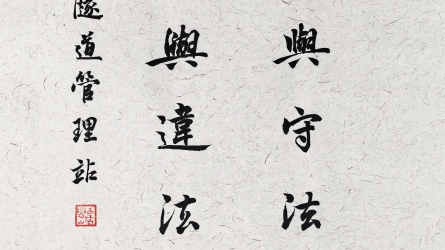 與守法
與違法
隧道管理站